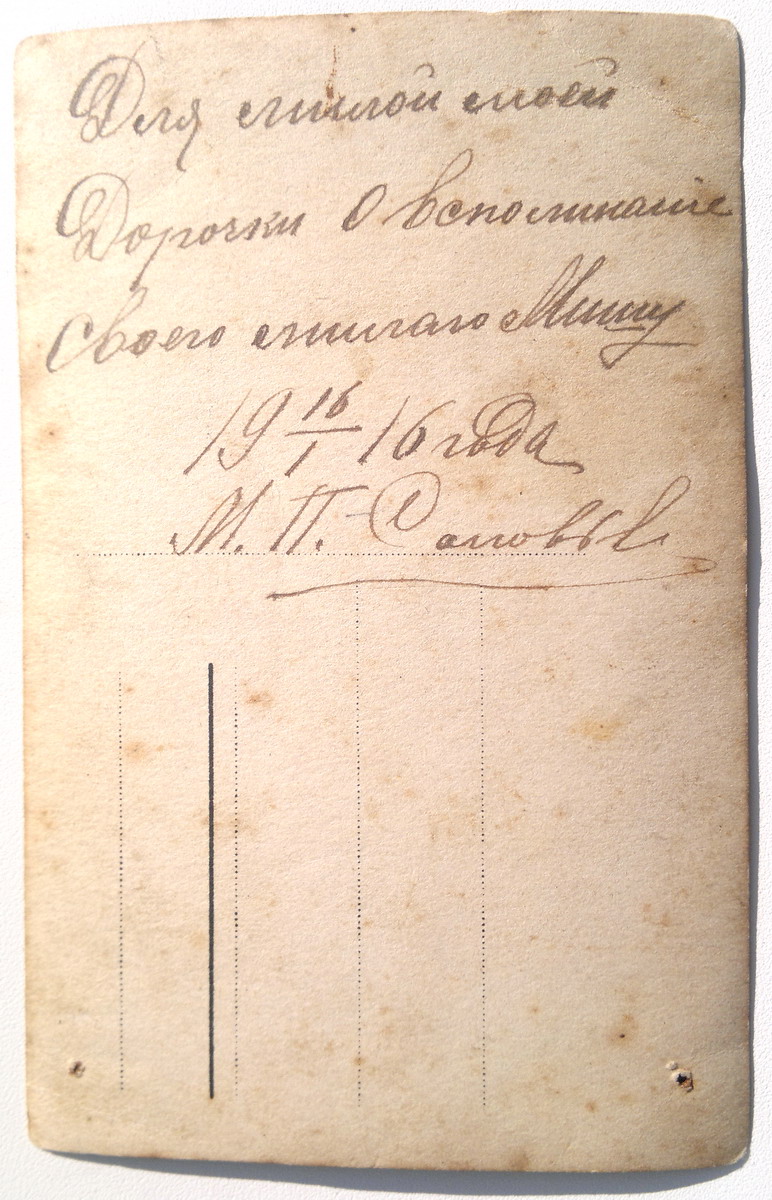 Для милой моей
Дорочки О вспоминание
своего милаго Мишу
19 16/1 16 года
М. П. Соловьев